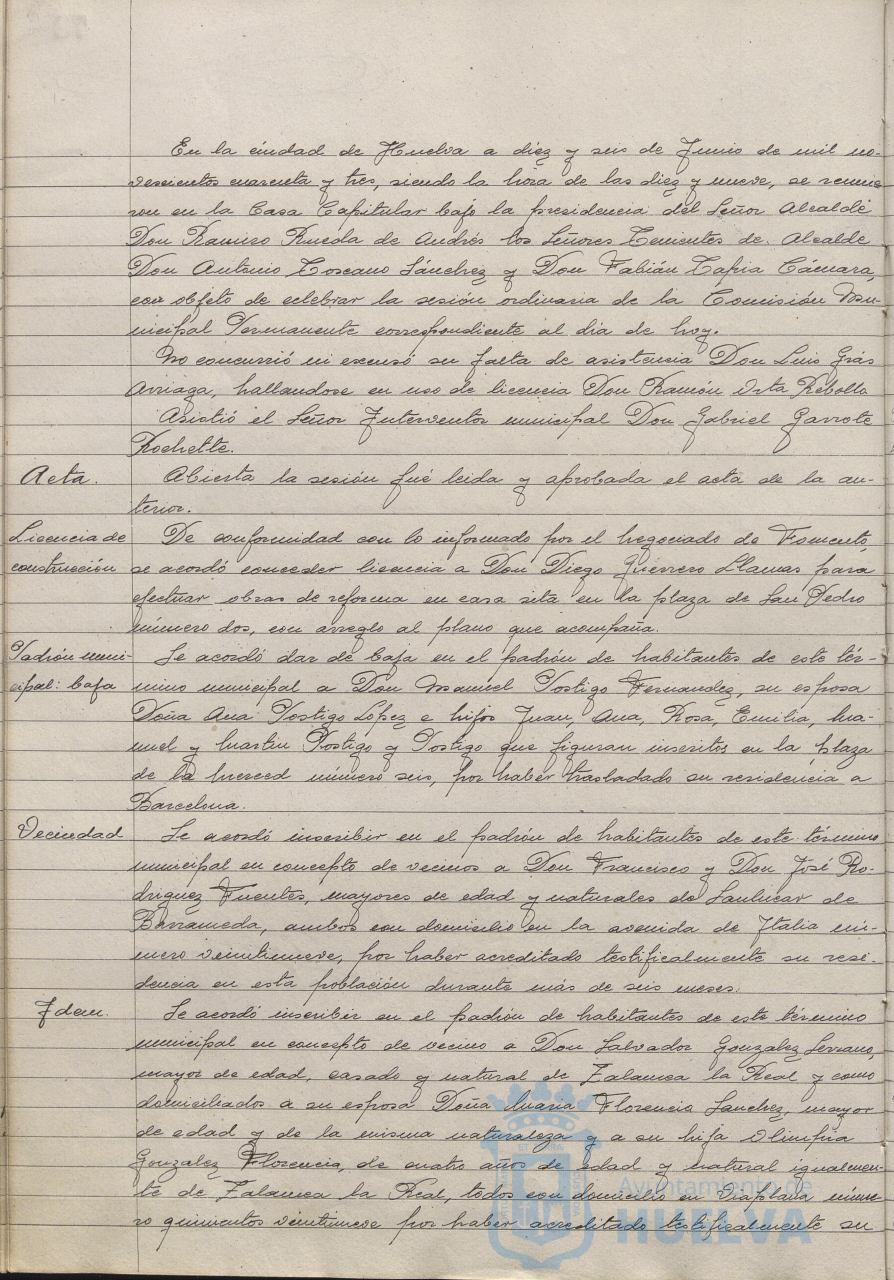 En la ciudad de Huelva a diez y seis de Junio de mil no-
vescientos cuarenta y tres, siendo la hora de las diez y nueve, se reunie
ron en la Casa Capitular bajo la presidencia del Señor Alcalde
Don Ramiro Rueda de Andrés los Señores Tenientes de Alcalde
Don Antonio Toscano Sánchez y Don Fabián Tapia Cámara,
con objeto de celebrar la sesión ordinaria de la Comisión Mu-
nicipal Permanente correspondiente al dia de hoy.
No concurrió ni excusó su falta de asistencia Don Luis Grás
Arriaga, hallandose en uso de licencia Don Ramón Orta Rebollo
Asistió el Señor Interventor municipal Don Gabriel Garrote
Rochette.
Acta. Abierta la sesión fué leida y aprobada el acta de la an-
terior.
Licencia de De conformidad con lo informado por el negociado de Fomento,
construcción se acordó conceder licencia a Don Diego Guerrero Llamas para
efectuar obras de reforma en casa sita en la plaza de San Pedro
número dos, con arreglo al plano que acompaña.
Padrón muni- Se acordó dar de baja en el padrón de habitantes de este tér-
cipal: baja mino municipal a Don Manuel Postigo Fernandez, su esposa
Doña Ana Postigo López e hijos Juan, Ana, Rosa, Emilia, Ma-
nuel y Martin Postigo y Postigo que figuran inscritos en la plaza
de la Merced número seis, por haber trasladado su residencia a
Barcelona.
Vecindad Se acordó inscribir en el padrón de habitantes de este término
municipal en concepto de vecinos a Don Francisco y Don José Ro-
driguez Fuentes, mayores de edad y naturales de Sanlucar de
Barrameda, ambos con domicilio en la avenida de Italia nú-
mero veintinueve, por haber acreditado testificalmente su resi-
dencia en esta población durante más de seis meses.
Idem. Se acordó inscribir en el padrón de habitantes de este término
municipal en concepto de vecino a Don Salvador Gonzalez Serrano,
mayor de edad, casado y natural de Zalamea la Real y como
domiciliados a su esposa Doña Maria Florencia Sanchez, mayor
de edad y de la misma naturaleza y a su hija Olimpia
Gonzalez Florencia, de cuatro años de edad y natural igualmen-
te de Zalamea la Real, todos con domicilio en Viaplana núme-
ro quinientos veintinueve por haber acreditado testificalmente su
Ayuntamiento de
HUELVA